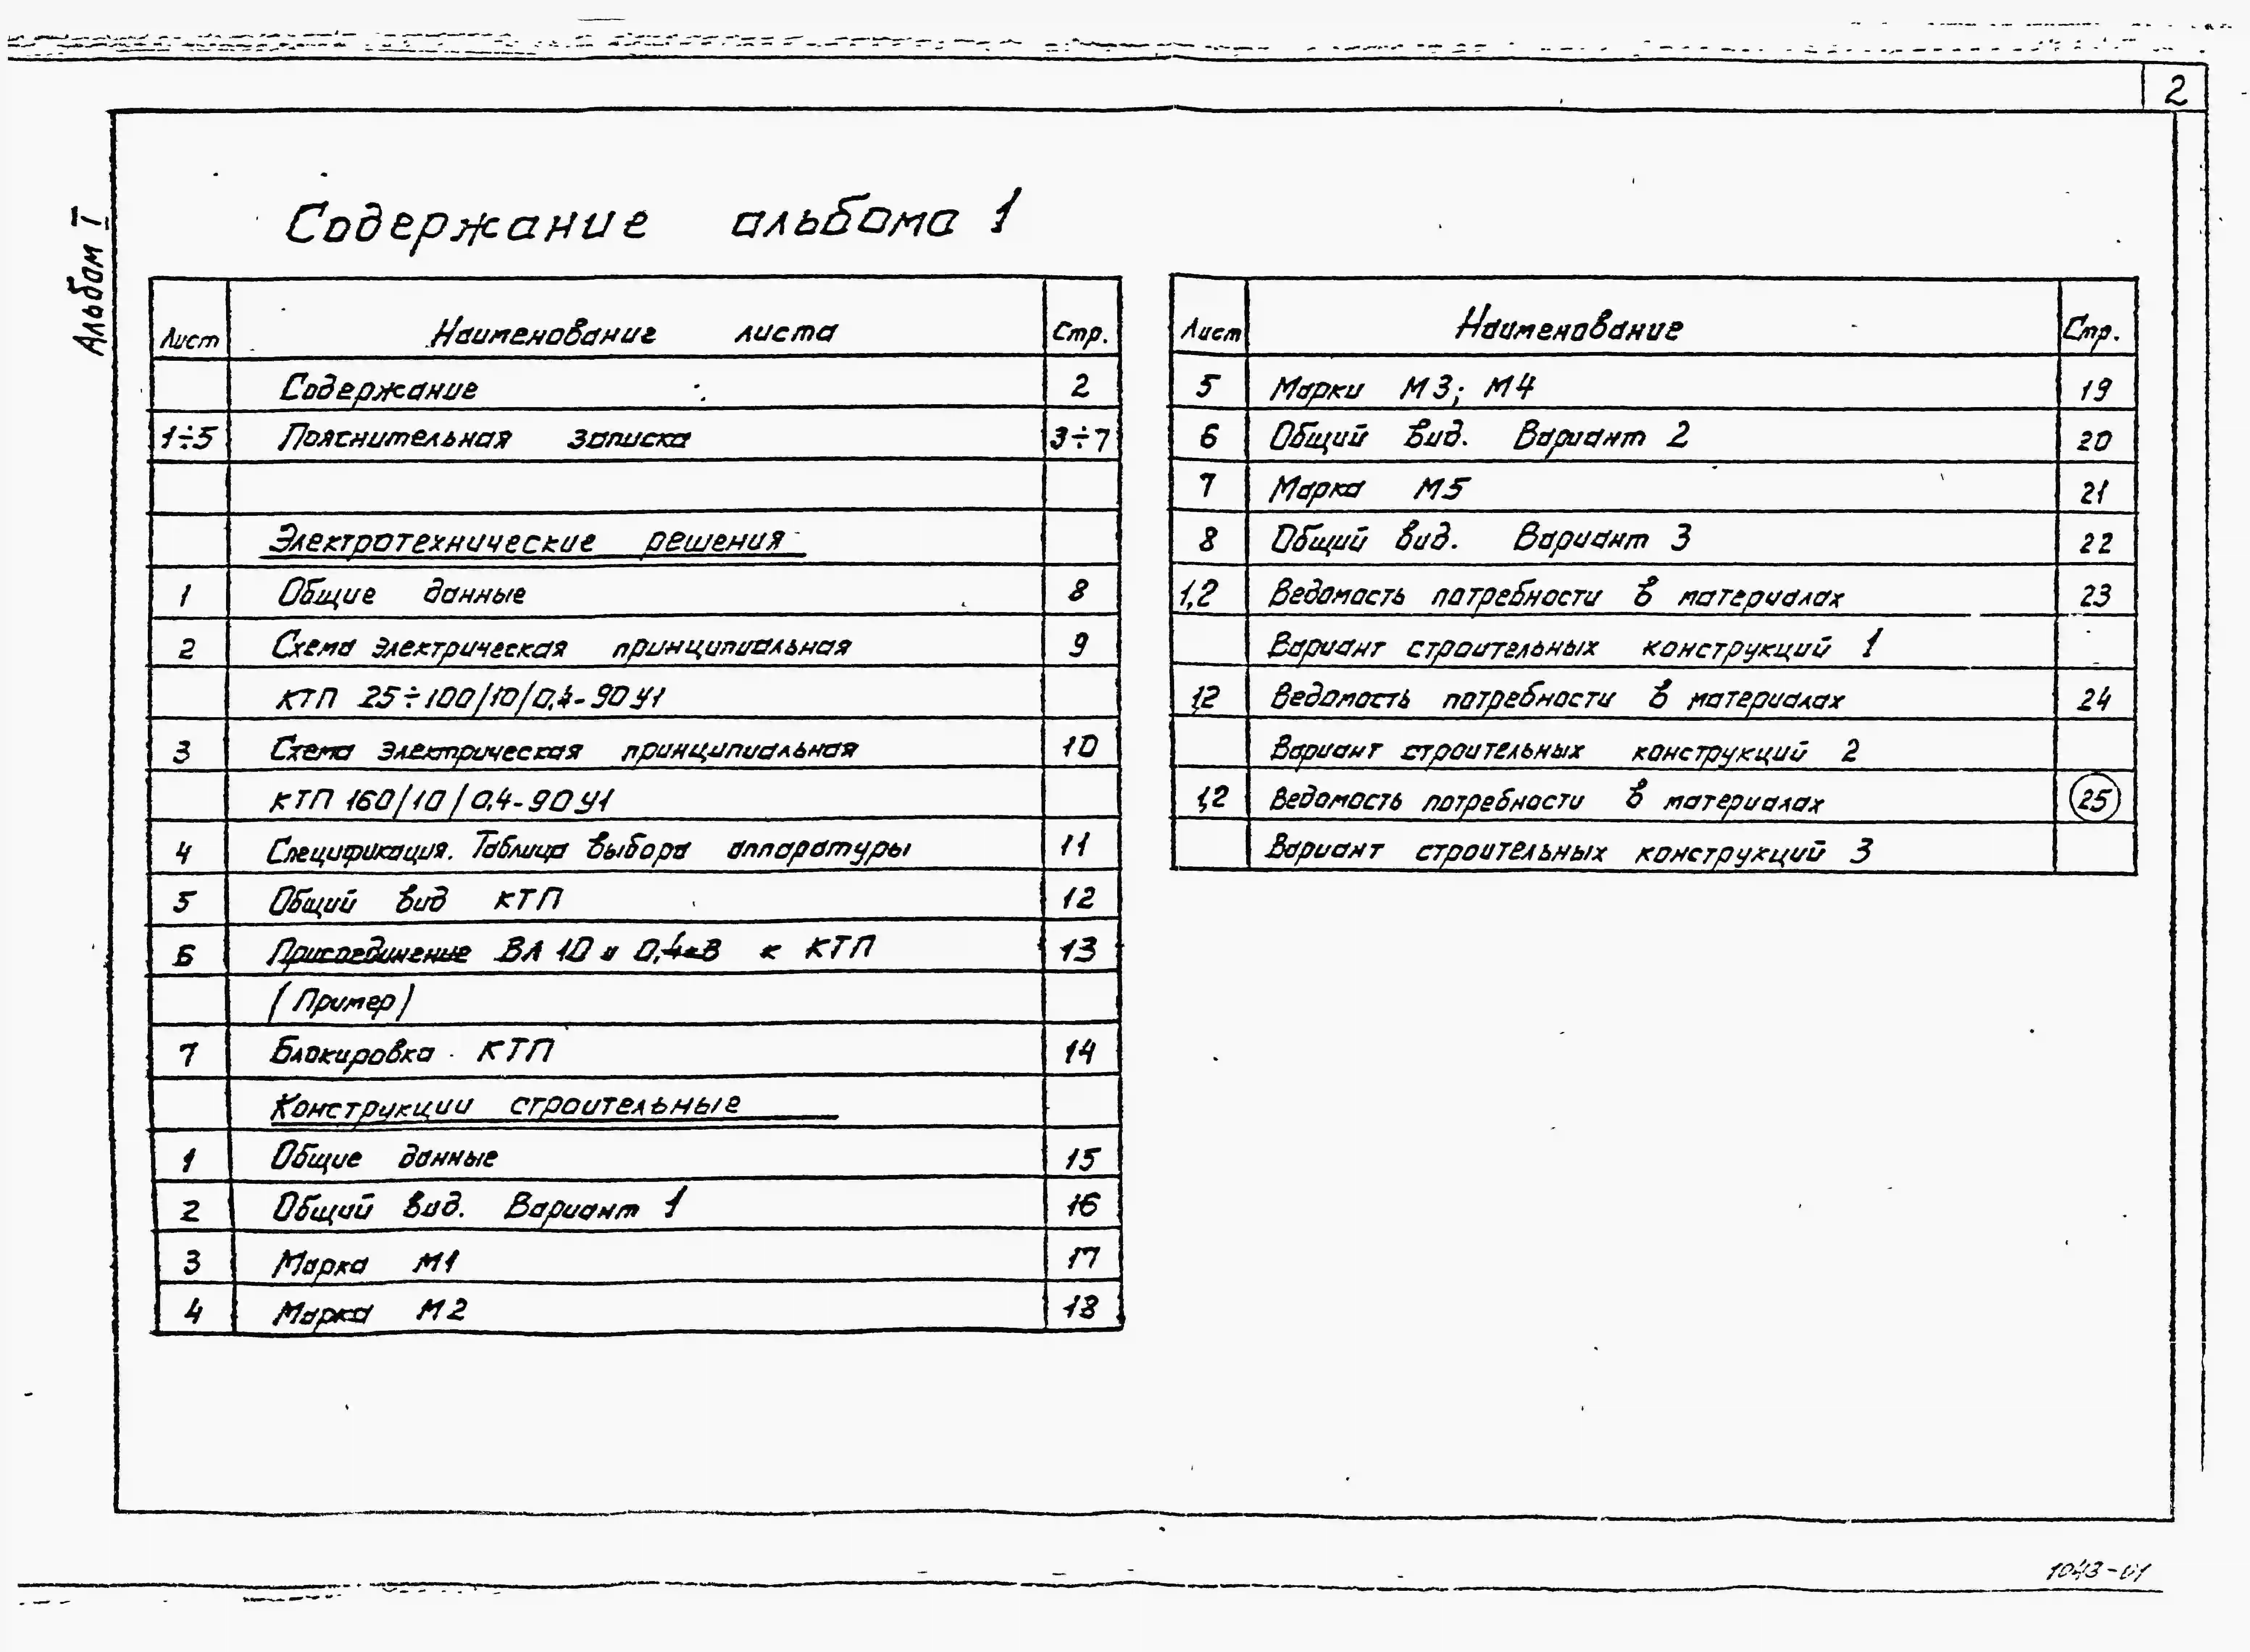 2
Альбом I
Содержание альбома 1
Лист Наименование листа Стр.
Содержание 2
1÷5 Пояснительная записка 3÷7
Электротехнические решения
1 Общие данные 8
2 Схема электрическая принципиальная 9
КТП 25÷100/10/0,4-90У1
3 Схема электрическая принципиальная 10
КТП 160/10/0,4-90У1
4 Спецификация. Таблица выбора аппаратуры 11
5 Общий вид КТП 12
6 Присоединение ВЛ 10 и 0,4кВ к КТП 13
(Пример)
7 Блокировка КТП 14
Конструкции строительные
1 Общие данные 15
2 Общий вид. Вариант 1 16
3 Марка М1 17
4 Марка М2 18
Лист Наименование Стр.
5 Марки М3; М4 19
6 Общий вид. Вариант 2 20
7 Марка М5 21
8 Общий вид. Вариант 3 22
1,2 Ведомость потребности в материалах 23
Вариант строительных конструкций 1
1,2 Ведомость потребности в материалах 24
Вариант строительных конструкций 2
1,2 Ведомость потребности в материалах 25
Вариант строительных конструкций 3
1043-01